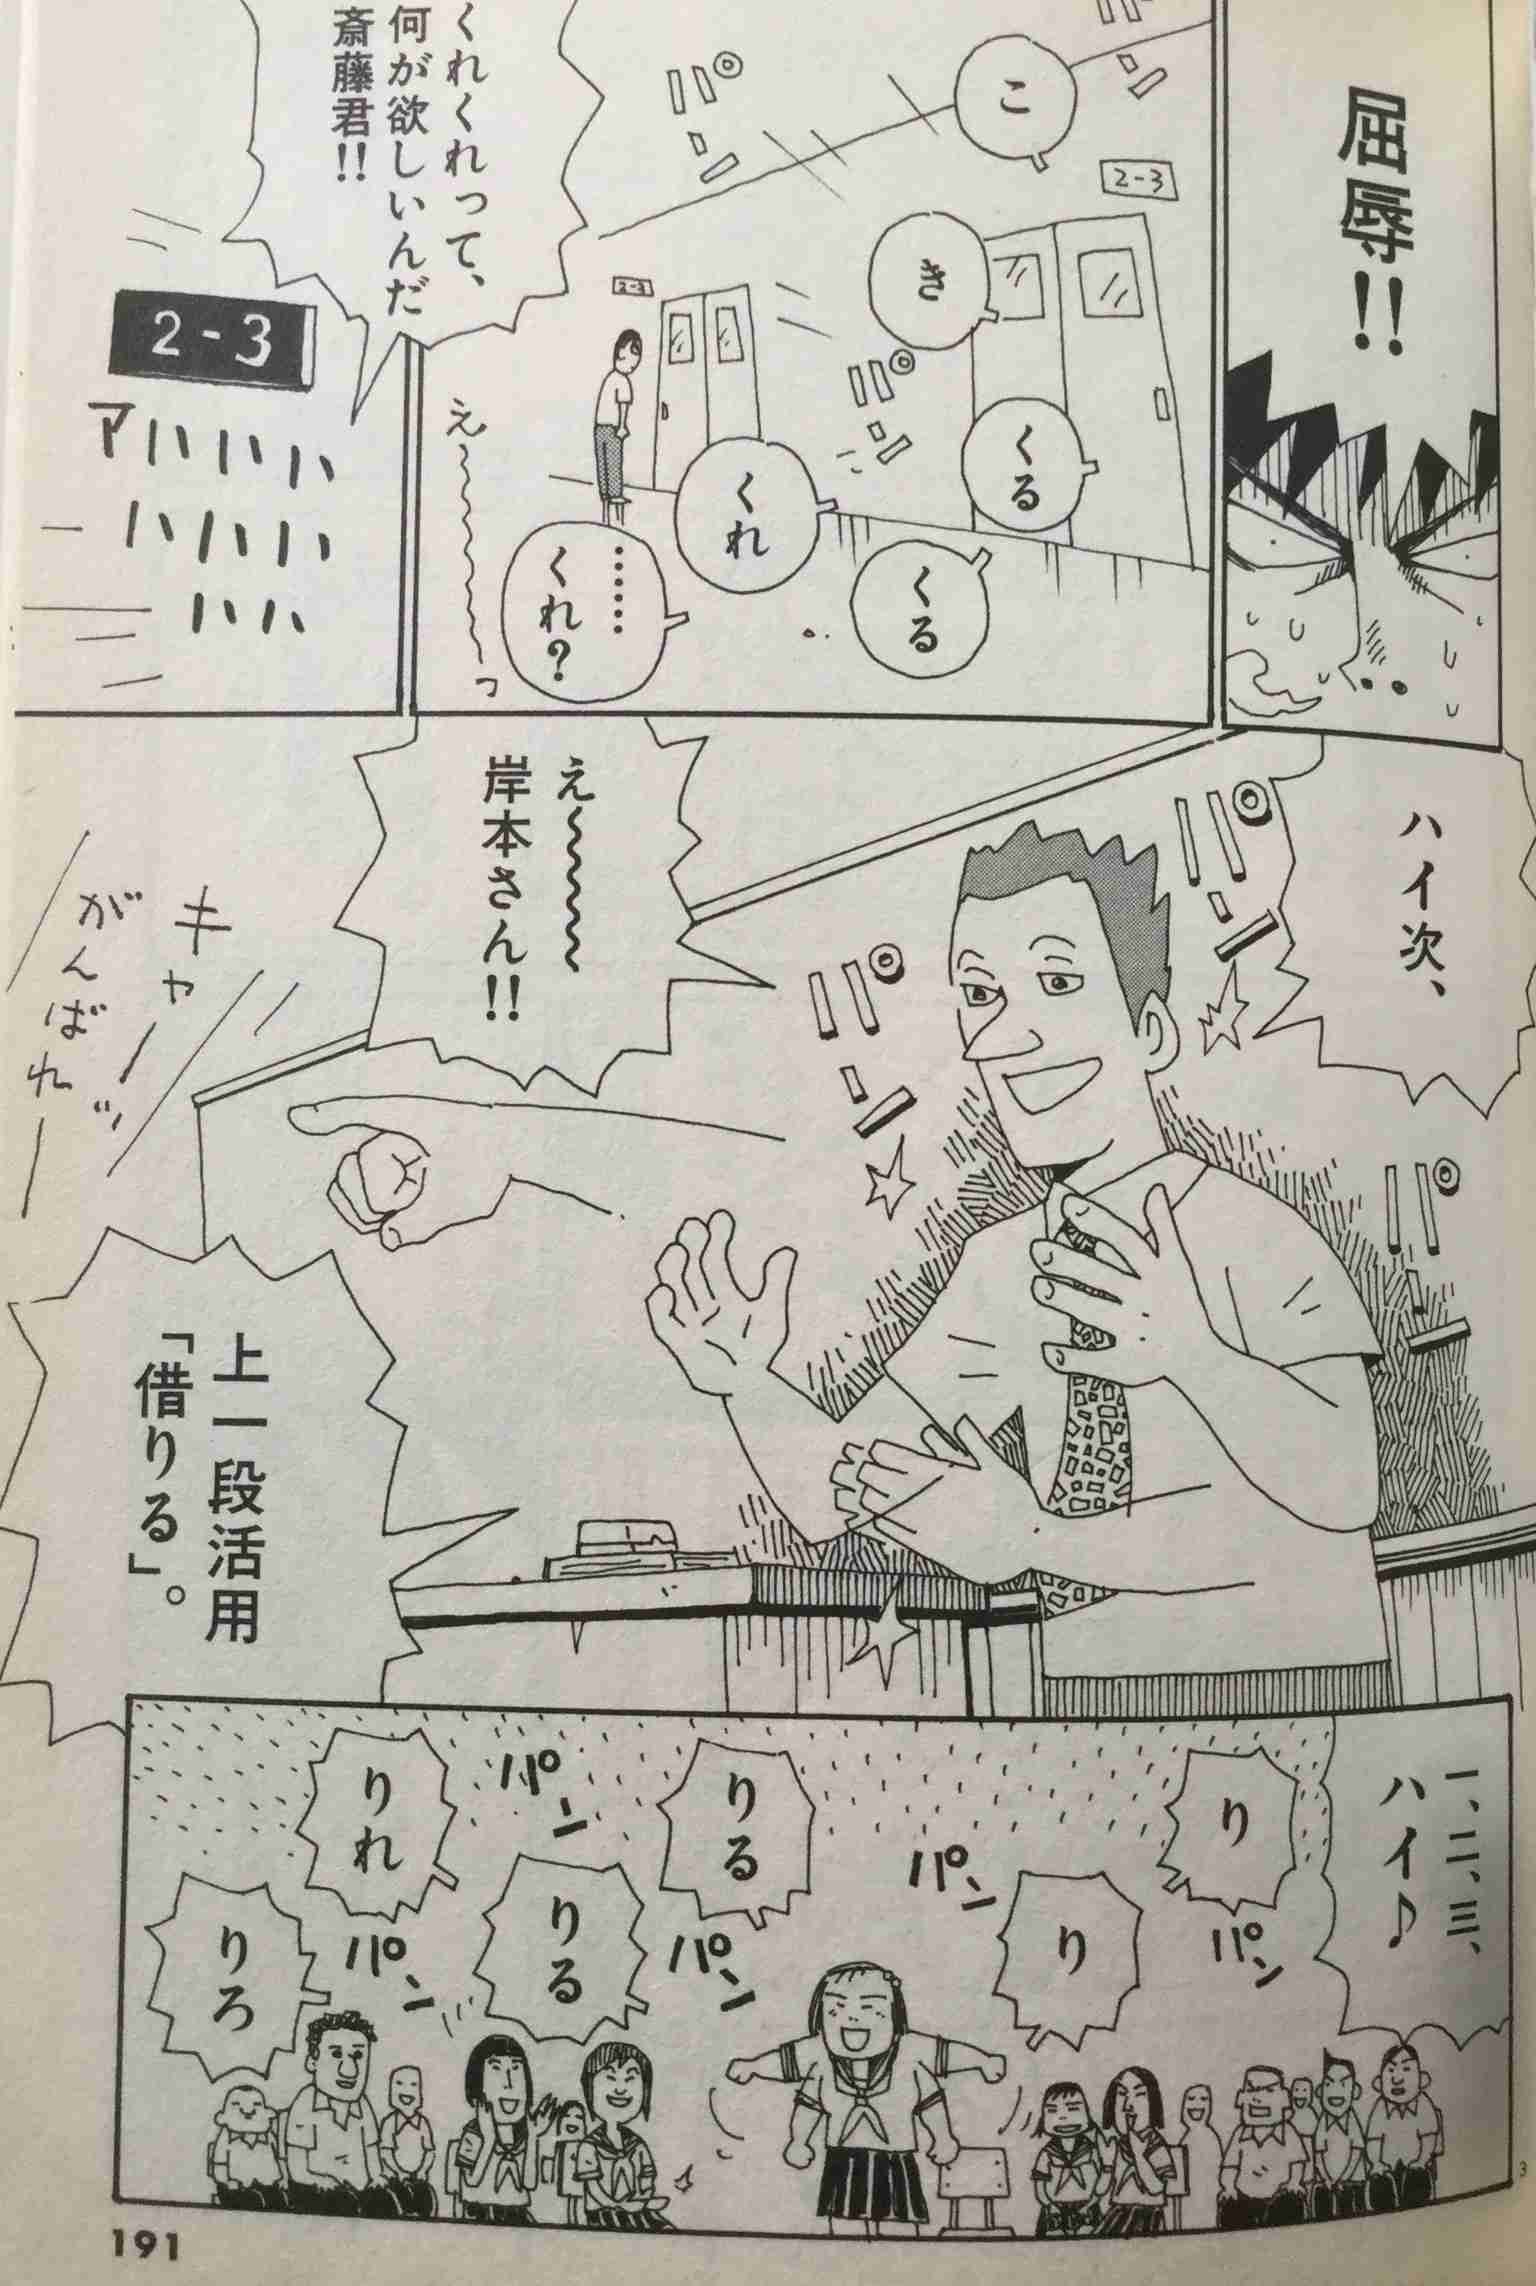 屈辱!!
パン
こ
2-3
き
パン
くる
パン
くる
くれ
2-3
……
くれ?
え〜〜〜っ
くれくれって、
何が欲しいんだ
斎藤君!!
2-3
アハハハ
ハハハ
ハハ
ハイ次、
パン
パン
パン
え〜〜〜〜
岸本さん!!
キャー
がんばれッー
上一段活用
「借りる」。
一、二、三、
ハイ♪
り
パン
り
パン
りる
パン
りる
パン
りれ
パン
りろ
3
191